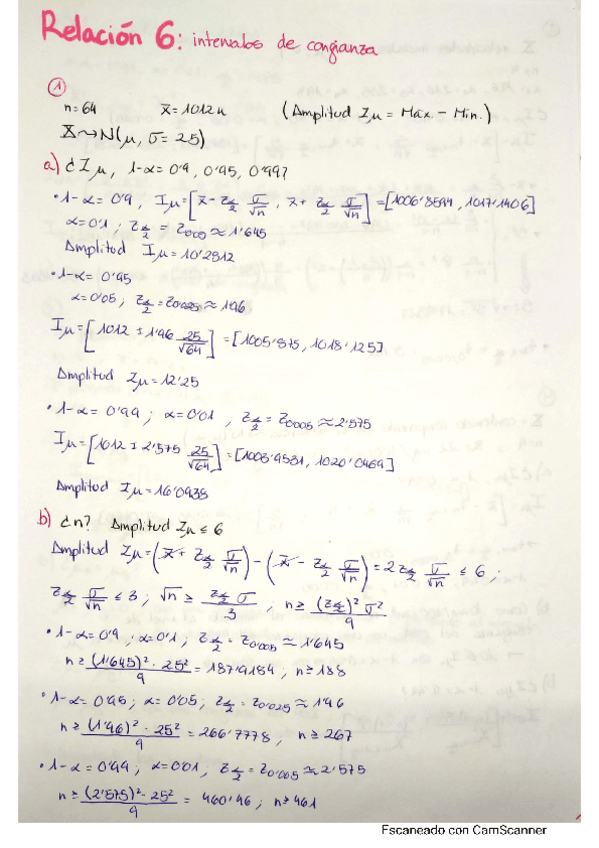 Relación 6: intervalos de confianza
①
n=64 x̄=1012 u (Amplitud Iμ = Máx. - Mín.)
X⇝N(μ, σ=25)
a) ¿Iμ, 1-α=0'9, 0'95, 0'99?
• 1-α=0'9, Iμ=[x̄ - z_{α/2} σ/√n, x̄ + z_{α/2} σ/√n] = [1006'8594, 1017'1406]
α=0'1; z_{α/2} = z_{0'05} ≈ 1'645
Amplitud Iμ = 10'2812
• 1-α= 0'95
α=0'05; z_{α/2} = z_{0'025} ≈ 1'96
Iμ=[1012 ± 1'96 25/√64] = [1005'875, 1018'125]
Amplitud Iμ = 12'25
• 1-α = 0'99; α=0'01, z_{α/2} = z_{0'005} ≈ 2'575
Iμ=[1012 ± 2'575 25/√64] = [1003'9531, 1020'0469]
Amplitud Iμ = 16'0938
b) ¿n? Amplitud Iμ ≤ 6
Amplitud Iμ = (x̄ + z_{α/2} σ/√n) - (x̄ - z_{α/2} σ/√n) = 2 z_{α/2} σ/√n ≤ 6;
z_{α/2} σ/√n ≤ 3; √n ≥ z_{α/2} σ/3; n ≥ (z_{α/2})² σ²/9
• 1-α = 0'9, α=0'1, z_{α/2} = z_{0'005} ≈ 1'645
n ≥ (1'645)² · 25²/9 = 187'9184; n ≥ 188
• 1-α = 0'95; α = 0'05; z_{α/2} = z_{0'025} ≈ 1'96
n ≥ (1'96)² · 25²/9 = 266'7778; n ≥ 267
• 1-α = 0'99, α=0'01, z_{α/2} = z_{0'005} ≈ 2'575
n ≥ (2'575)² · 25²/9 = 460'46; n ≥ 461
Escaneado con CamScanner